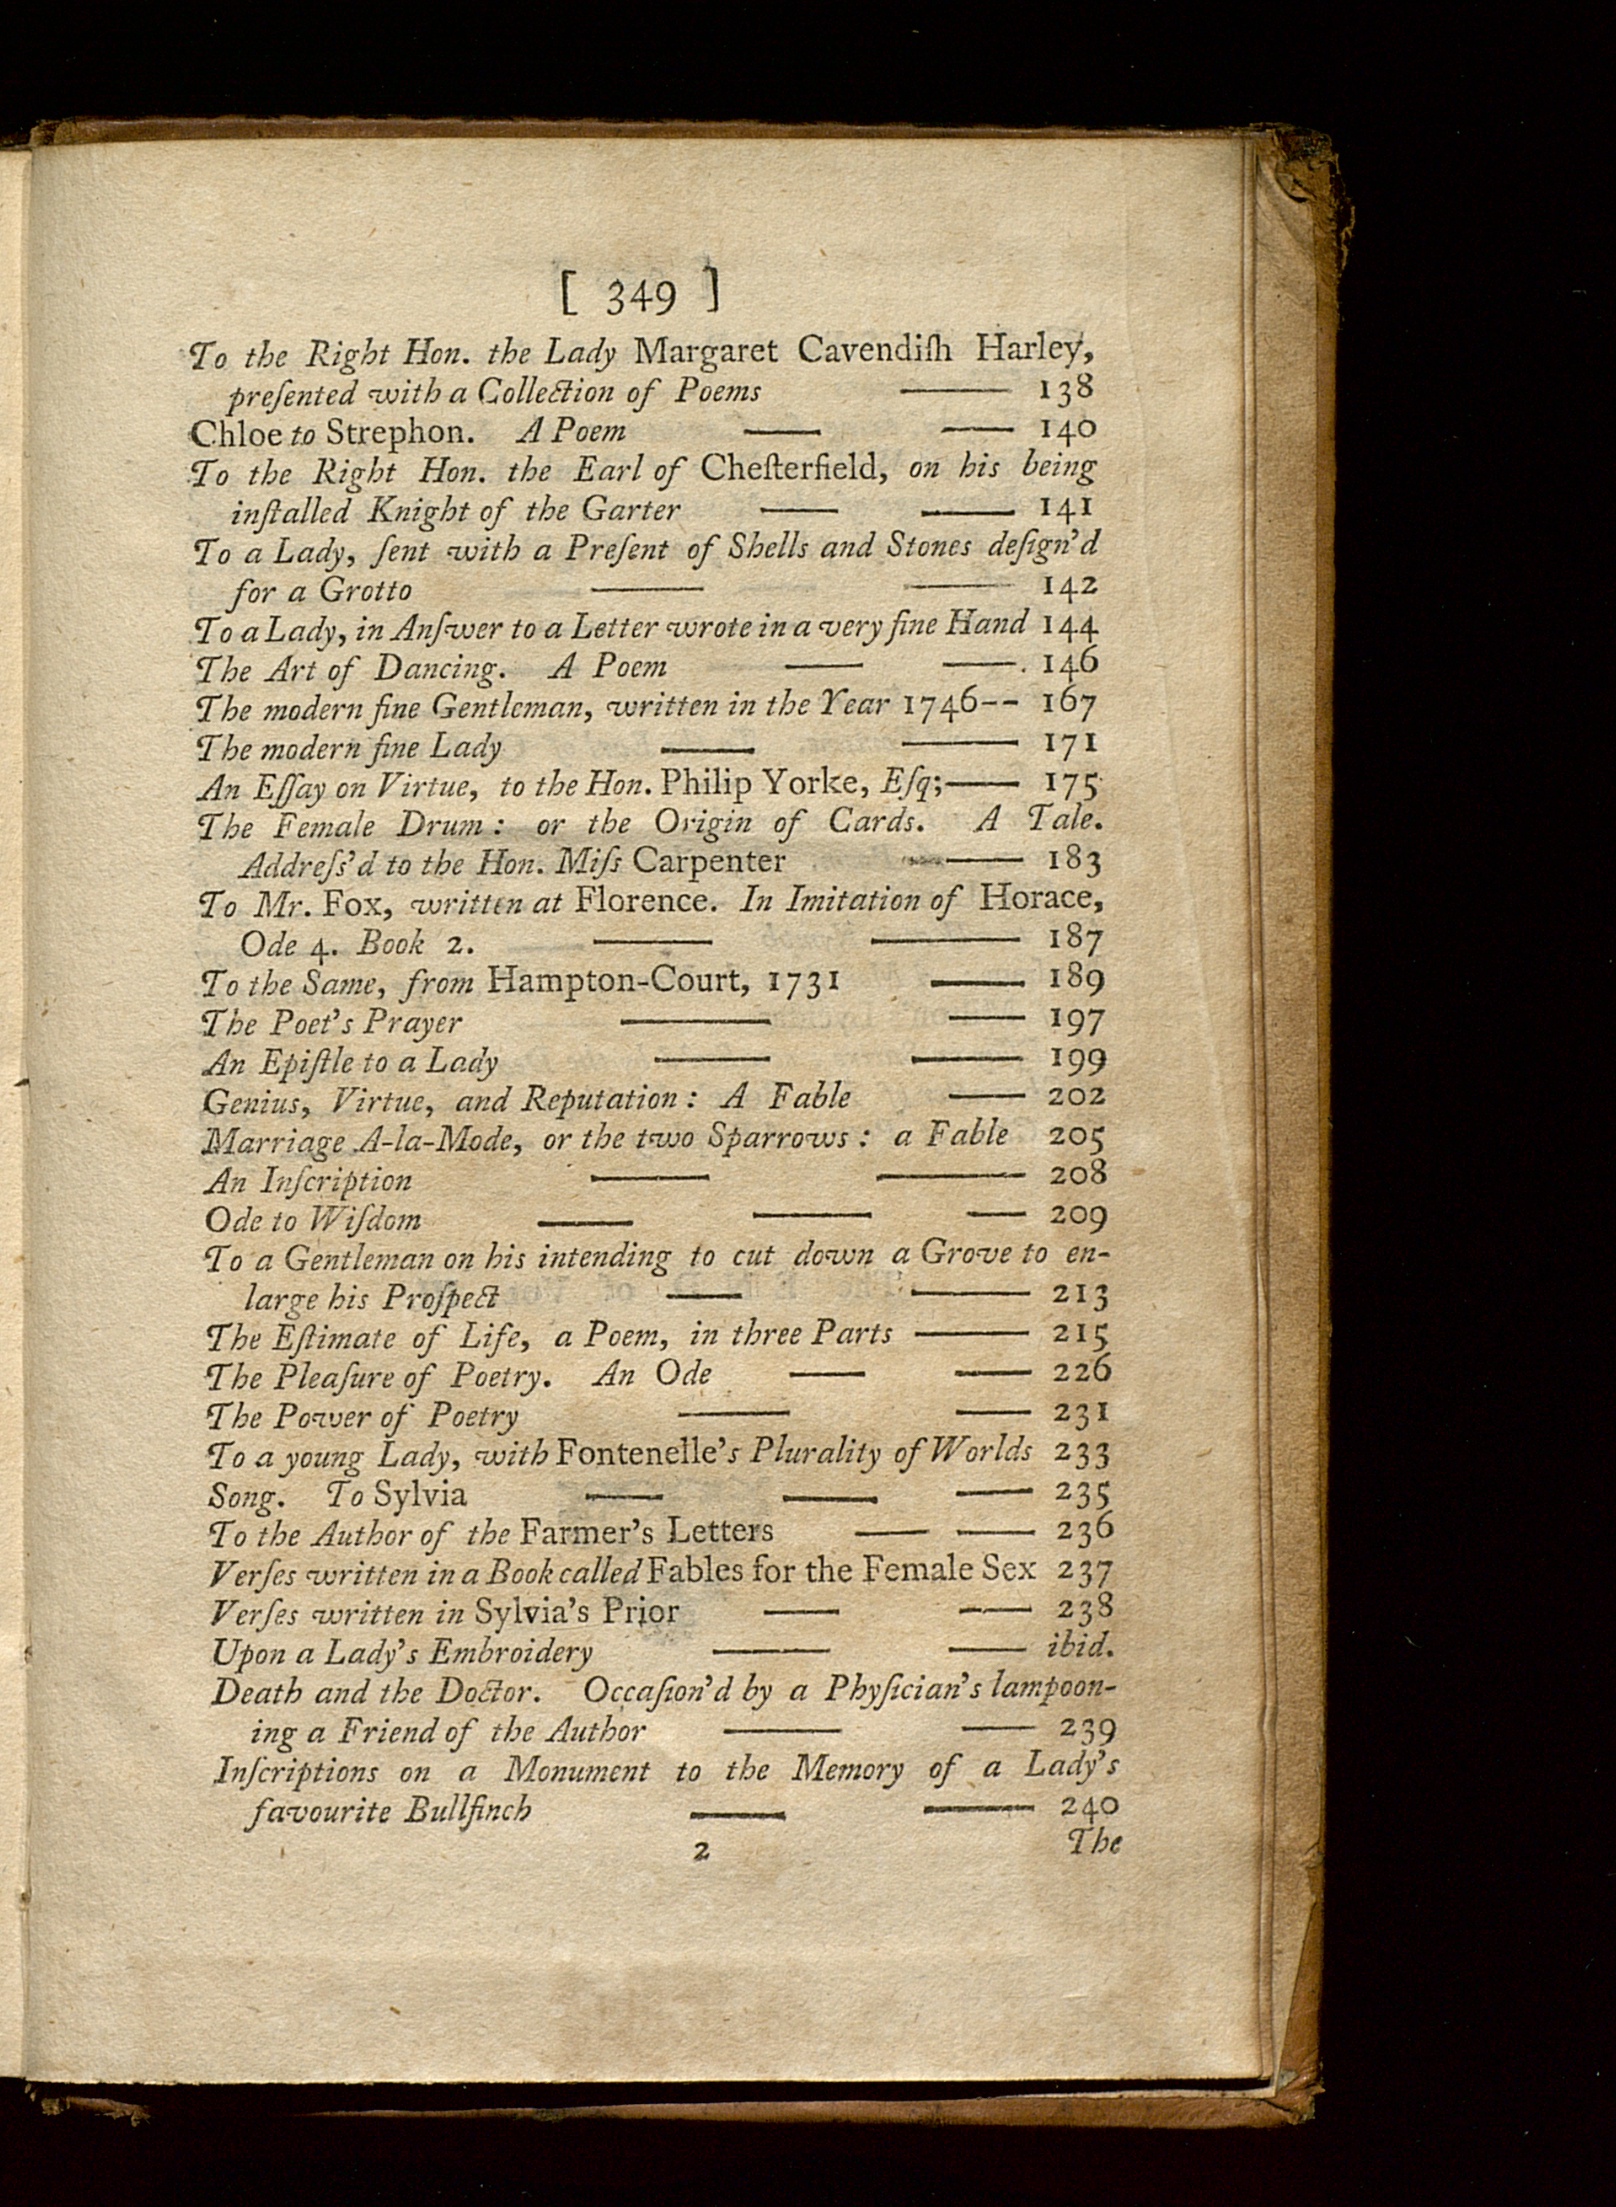 [ 349 ]
To the Right Hon. the Lady Margaret Cavendiſh Harley,
preſented with a Collection of Poems —— 138
Chloe to Strephon. A Poem —— —— 140
To the Right Hon. the Earl of Cheſterfield, on his being
inſtalled Knight of the Garter —— —— 141
To a Lady, ſent with a Preſent of Shells and Stones deſign'd
for a Grotto —— —— 142
To a Lady, in Anſwer to a Letter wrote in a very fine Hand 144
The Art of Dancing. A Poem —— ——. 146
The modern fine Gentleman, written in the Year 1746-- 167
The modern fine Lady —— —— 171
An Eſſay on Virtue, to the Hon. Philip Yorke, Eſq;—— 175
The Female Drum: or the Origin of Cards. A Tale.
Addreſs'd to the Hon. Miſs Carpenter —— 183
To Mr. Fox, written at Florence. In Imitation of Horace,
Ode 4. Book 2. —— —— 187
To the Same, from Hampton-Court, 1731 —— 189
The Poet's Prayer —— —— 197
An Epiſtle to a Lady —— —— 199
Genius, Virtue, and Reputation: A Fable —— 202
Marriage A-la-Mode, or the two Sparrows: a Fable 205
An Inſcription —— —— 208
Ode to Wiſdom —— —— —— 209
To a Gentleman on his intending to cut down a Grove to en-
large his Proſpect —— —— 213
The Eſtimate of Life, a Poem, in three Parts —— 215
The Pleaſure of Poetry. An Ode —— —— 226
The Power of Poetry —— —— 231
To a young Lady, with Fontenelle's Plurality of Worlds 233
Song. To Sylvia —— —— —— 235
To the Author of the Farmer's Letters —— —— 236
Verſes written in a Book called Fables for the Female Sex 237
Verſes written in Sylvia's Prior —— —— 238
Upon a Lady's Embroidery —— —— ibid.
Death and the Doctor. Occaſion'd by a Phyſician's lampoon-
ing a Friend of the Author —— —— 239
Inſcriptions on a Monument to the Memory of a Lady's
favourite Bullfinch —— —— 240
2 The